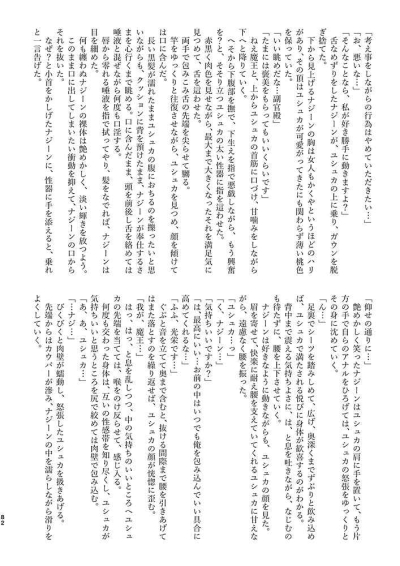 「考え事をしながらの行為はやめていただきたい…」
「お、悪いな…」
「そんなことなら、私が好き勝手に動きますよ？」
舌なめずりをしたナジーンが、ユシュカの上に乗り、ガウンを脱
ぎ捨てる。
下から見上げるナジーンの胸は女人もかくやというほどのハリ
があり、その頂はユシュカが可愛がってきたにも関わらず薄い桃色
を保っていた。
「いい眺めだな…副官殿」
「たまには褒美をもらってもいいくらいです」
ねえ魔王、と上からユシュカの首筋に口づけ、甘噛みをしながら
下へと降りていく。
へそから下腹部を撫で、下生えを指で悪戯しながら、もう興奮
をと、そそり立つユシュカの太い性器に指を這わせた。
赤黒く肉色を見せながら、最大まで大きくなったそれを満足気に
見つめて、舌を這わせた。
両手で包みこみ、舌の先端を尖らせて嬲る。
竿をゆっくりと往復させながら、ユシュカを見つめ、顔を傾けて
は口に含んだ。
長い黒髪が濡れたままユシュカの腹におちるのを擽ったいと思
いながらも、クッションに背を預けたまま、ナジーンが奉仕するさ
まを心行くまで眺める。口に含んだまま、頭を前後し舌を絡めては
唾液と混ぜながら何度も口淫する。
唇から零れる唾液を指で拭ってやり、髪をなでれば、ナジーンは
目を細めた。
何も纏わぬナジーンの裸体は艶めかしく、淡い輝きを放つよう。
このまま口に出してしまいたい衝動を抑えて、ナジーンの口から
それを抜いた。
なぜ？と小首をかしげたナジーンに、性器に手を添えると、乗れ
と一言告げた。
「仰せの通りに…」
艶めかしく笑ったナジーンはユシュカの肩に手を置いて、もう片
方の手で自らのアナルをひろげては、ユシュカの怒張をゆっくりと
その身に沈めていく。
足裏でシーツを踏みしめて、広げ、奥深くまでずぶりと飲み込め
ば、ユシュカで満たされる悦びに身体が歓喜するのがわかる。
背中まで震える気持ちよさに、は、と息を吐きながら、なじむの
も待たずに、腰を上下させていく。
ナジーンは好きなように動きながらも、ユシュカの顔を見た。
肩を寄せて、快楽に耐え腰を支えていてくれるユシュカに甘えな
がら、遠慮なく腰を振った。
「ユシュカ…っ」
「く、ナジーン…」
「気持ちいいですか？」
「は、最高にいい…！お前の中はいつでも俺を包み込んでいい具合に
高めてくれるな…」
「ふふ、光栄です…」
ぐぷと音を立てて奥まで含むと、抜ける間際まで腰を引きあげて
はまた落とすのを繰り返せば、ユシュカの顔が恍惚に歪む。
「我が、魔王…」
はっ、はっ、と息を乱しつつ、中の気持ちのいいところへユシュ
カの先端を当てては、喉をのけ反らせて、感じ入る。
何度も交わった身体は、互いの性感帯を知り尽くし、ユシュカが
気持ちいいと思うところを尻で絞めては肉壁で包み込む。
「あ、あ、ユシュカ…」
「…ナジーン」
びくびくと肉壁が蠕動し、怒張したユシュカを搔きあげる。
先端からはカウパーが滲み、ナジーンの中を濡らしながら滑りを
よくしていく。
82